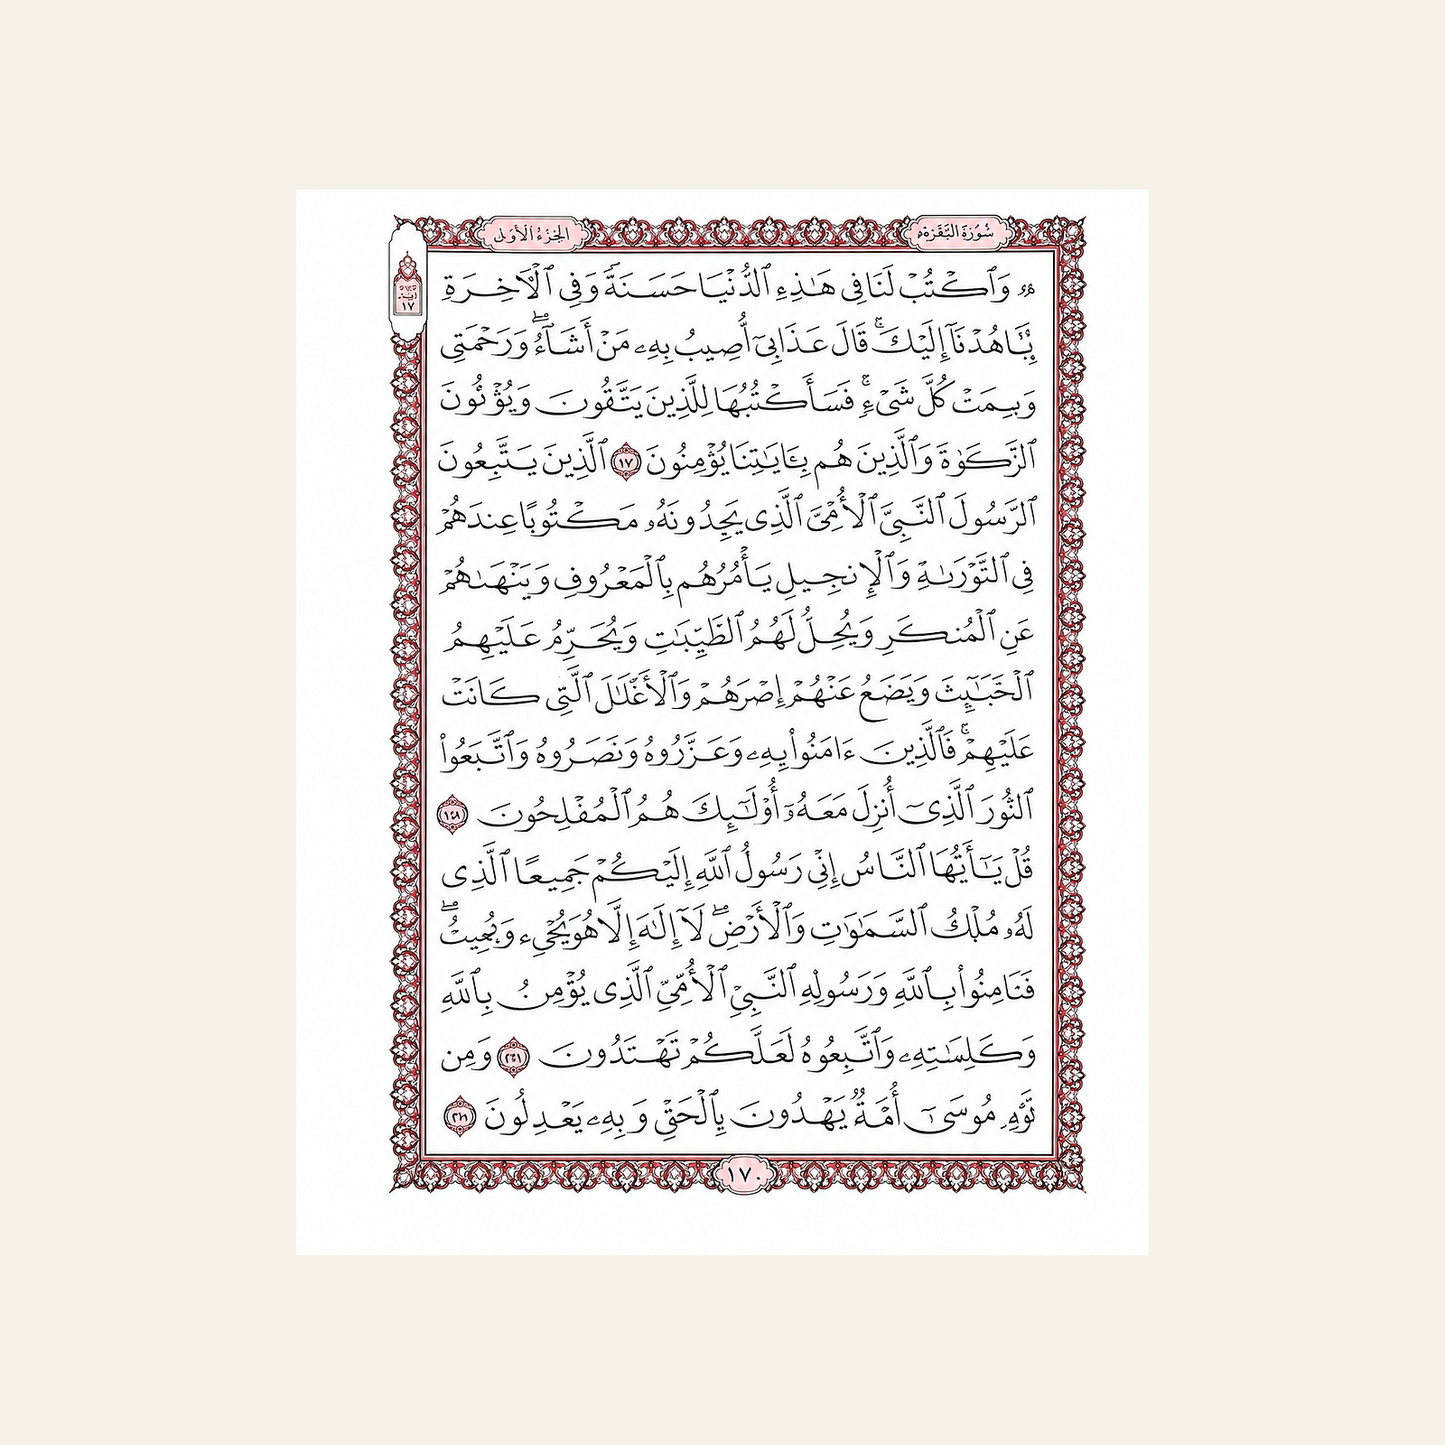 سُورَةُ البَقَرَة
الجُزءُ الأَوَّل
١٧
وَٱكۡتُبۡ لَنَا فِى هَـٰذِهِ ٱلدُّنۡيَا حَسَنَةً وَفِى ٱلۡأَخِرَةِ
هُدۡنَآ إِلَيۡكَۚ قَالَ عَذَابِىٓ أُصِيبُ بِهِۦ مَنۡ أَشَآءُۖ وَرَحۡمَتِى
كُلَّ شَىۡءٍۚ فَسَأَكۡتُبُهَا لِلَّذِينَ يَتَّقُونَ
ٱلزَّكَوٰةَ وَٱلَّذِينَ هُم بِـَٔايَـٰتِنَا يُؤۡمِنُونَ ١٧ ٱلَّذِينَ يَتَّبِعُونَ
ٱلرَّسُولَ ٱلنَّبِىَّ ٱلۡأُمِّىَّ ٱلَّذِى يَجِدُونَهُۥ مَكۡتُوبًا عِندَهُمۡ
فِى ٱلتَّوۡرَىٰةِ وَٱلۡإِنجِيلِ يَأۡمُرُهُم بِٱلۡمَعۡرُوفِ وَيَنۡهَىٰهُمۡ
عَنِ ٱلۡمُنكَرِ وَيُحِلُّ لَهُمُ وَيُحَرِّمُ عَلَيۡهِمُ
ٱلۡخَبَـٰٓئِثَ وَيَضَعُ عَنۡهُمۡ إِصۡرَهُمۡ وَٱلۡأَغۡلَـٰلَ ٱلَّتِى كَانَتۡ
عَلَيۡهِمۡۚ فَٱلَّذِينَ ءَامَنُوا۟ وَعَزَّرُوهُ وَنَصَرُوهُ وَٱتَّبَعُوا۟
ٱلنُّورَ ٱلَّذِىٓ أُنزِلَ مَعَهُۥٓ أُو۟لَـٰٓئِكَ هُمُ ٱلۡمُفۡلِحُونَ
قُلۡ يَـٰٓأَيُّهَا ٱلنَّاسُ إِنِّى رَسُولُ ٱللَّهِ إِلَيۡكُمۡ جَمِيعًا ٱلَّذِى
لَهُۥ مُلۡكُ ٱلسَّمَـٰوَٰتِ وَٱلۡأَرۡضِۖ لَآ إِلَـٰهَ إِلَّا هُوَ يُحۡىِۦ
فَـَٔامِنُوا۟ بِٱللَّهِ وَرَسُولِهِ ٱلنَّبِىِّ ٱلۡأُمِّىِّ ٱلَّذِى يُؤۡمِنُ بِٱللَّهِ
وَٱتَّبِعُوهُ لَعَلَّكُمۡ تَهۡتَدُونَ وَمِن
مُوسَىٰٓ أُمَّةٌ يَهۡدُونَ بِٱلۡحَقِّ وَبِهِۦ يَعۡدِلُونَ
١٧٠